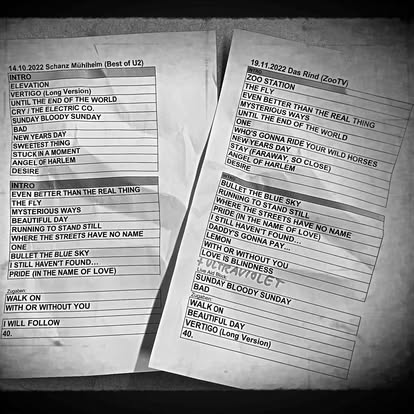 14.10.2022 Schanz Mühlheim (Best of U2)
INTRO
ELEVATION
VERTIGO (Long Version)
UNTIL THE END OF THE WORLD
CRY / THE ELECTRIC CO.
SUNDAY BLOODY SUNDAY
BAD
NEW YEARS DAY
SWEETEST THING
STUCK IN A MOMENT
ANGEL OF HARLEM
DESIRE
INTRO
EVEN BETTER THAN THE REAL THING
THE FLY
MYSTERIOUS WAYS
BEAUTIFUL DAY
RUNNING TO STAND STILL
WHERE THE STREETS HAVE NO NAME
ONE
BULLET THE BLUE SKY
I STILL HAVEN'T FOUND...
PRIDE (IN THE NAME OF LOVE)
Zugaben:
WALK ON
WITH OR WITHOUT YOU
I WILL FOLLOW
40.
19.11.2022 Das Rind (ZooTV)
Intro:
ZOO STATION
THE FLY
EVEN BETTER THAN THE REAL THING
MYSTERIOUS WAYS
UNTIL THE END OF THE WORLD
ONE
WHO'S GONNA RIDE YOUR WILD HORSES
NEW YEARS DAY
STAY (FARAWAY, SO CLOSE)
ANGEL OF HARLEM
DESIRE
BULLET THE BLUE SKY
RUNNING TO STAND STILL
WHERE THE STREETS HAVE NO NAME
PRIDE (IN THE NAME OF LOVE)
I STILL HAVEN'T FOUND...
DADDY'S GONNA PAY...
LEMON
WITH OR WITHOUT YOU
LOVE IS BLINDNESS
+ ULTRAVIOLET
SUNDAY BLOODY SUNDAY
BAD
Zugaben:
WALK ON
BEAUTIFUL DAY
VERTIGO (Long Version)
40.